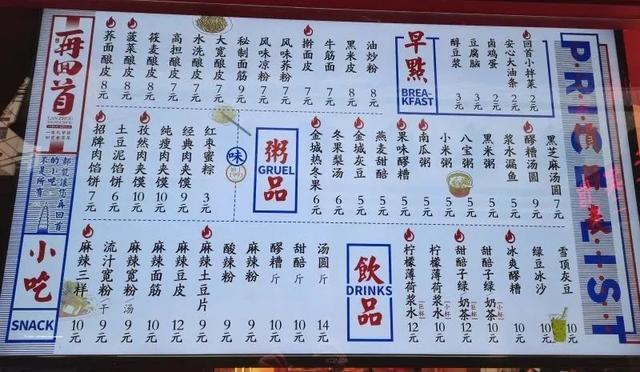 再回首
LANZHOU
不是所有
的小吃
都能滚你再回首
小吃
SNACK
荞面酿皮 8元
菠菜酿皮 8元
筱麦酿皮 8元
高担酿皮 7元
水洗酿皮 7元
大宽酿皮 7元
秘制面筋 9元
风味凉粉 7元
风味荞粉 7元
擀面皮 7元
牛筋面 7元
黑米皮 8元
油炒粉 8元
早點
BREA-
KFAST
醇豆浆 3元
豆腐脑 3元
卤鸡蛋 2元
安心大油条 2元
回首小拌菜 2元
招牌肉馅饼 7元
土豆泥馅饼 6元
孜然肉夹馍 10元
纯瘦肉夹馍 10元
经典肉夹馍 9元
红枣蜜粽 3元
味
粥
GRUEL
品
金城热冬果 6元
冬果梨汤 6元
金城灰豆 5元
燕麦甜醅 5元
果味醪糟 5元
南瓜粥 5元
小米粥 5元
八宝粥 5元
黑米粥 5元
浆水漏鱼 5元
醪糟汤圆 9元
黑芝麻汤圆 7元
麻辣三样 10元
流汁宽粉 干 9元
麻辣宽粉 汤 9元
麻辣面筋 10元
麻辣豆皮 12元
麻辣土豆片 9元
酸辣粉 9元
麻辣粉 9元
醪糟 斤 10元
甜醅 斤 10元
汤圆 斤 14元
飲
DRINKS
品
柠檬薄荷浆水 12元
柠檬薄荷浆水 10元
甜醅子绿奶茶 12元
甜醅子绿奶茶 10元
冰爽醪糟 10元
绿豆冰沙 10元
雪顶灰豆 10元
PRICE LIST
價目表